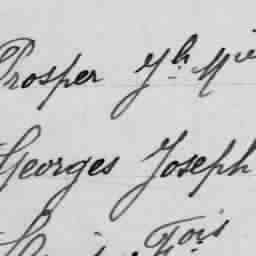 Prosper Jh Mie
Georges Joseph
Fois